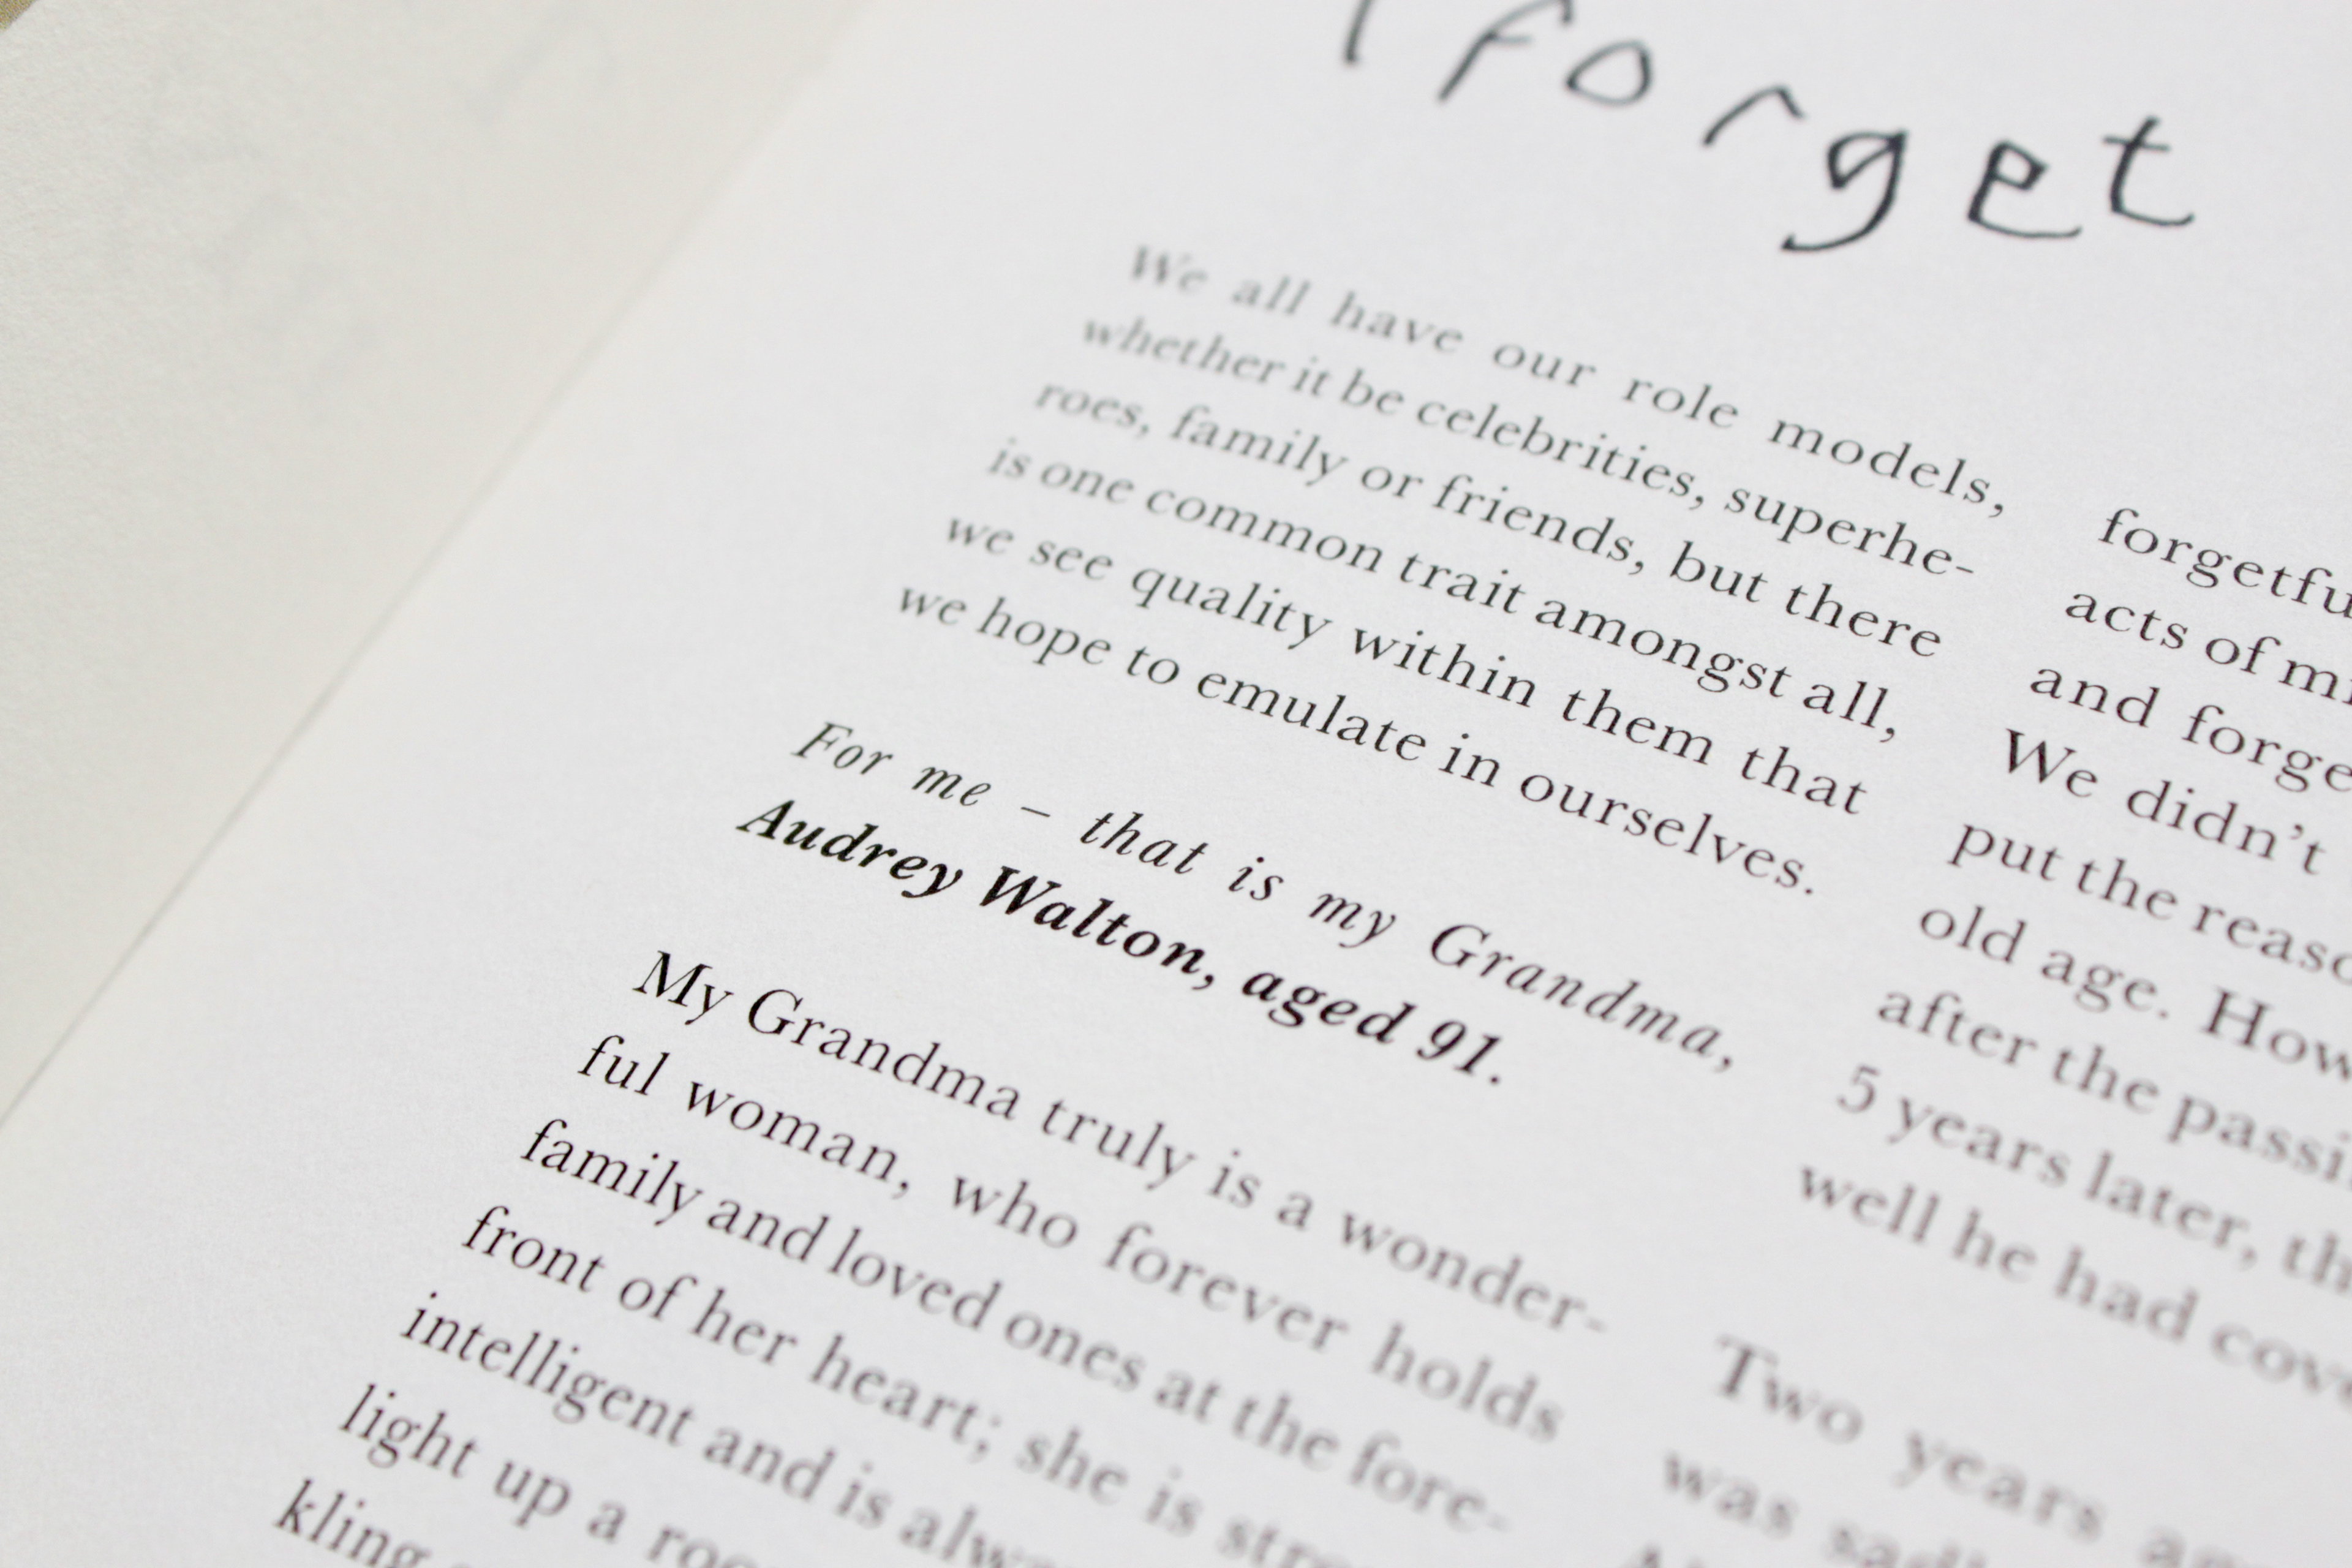 I forget
We all have our role models,
whether it be celebrities, superhe-
roes, family or friends, but there
is one common trait amongst all,
we see quality within them that
we hope to emulate in ourselves.
For me – that is my Grandma,
Audrey Walton, aged 91.
My Grandma truly is a wonder-
ful woman, who forever holds
family and loved ones at the fore-
front of her heart; she is
intelligent and is
light up a
kling
acts of
and
We didn't
put the
old age.
after the
5 years later,
well he had
Two years
was